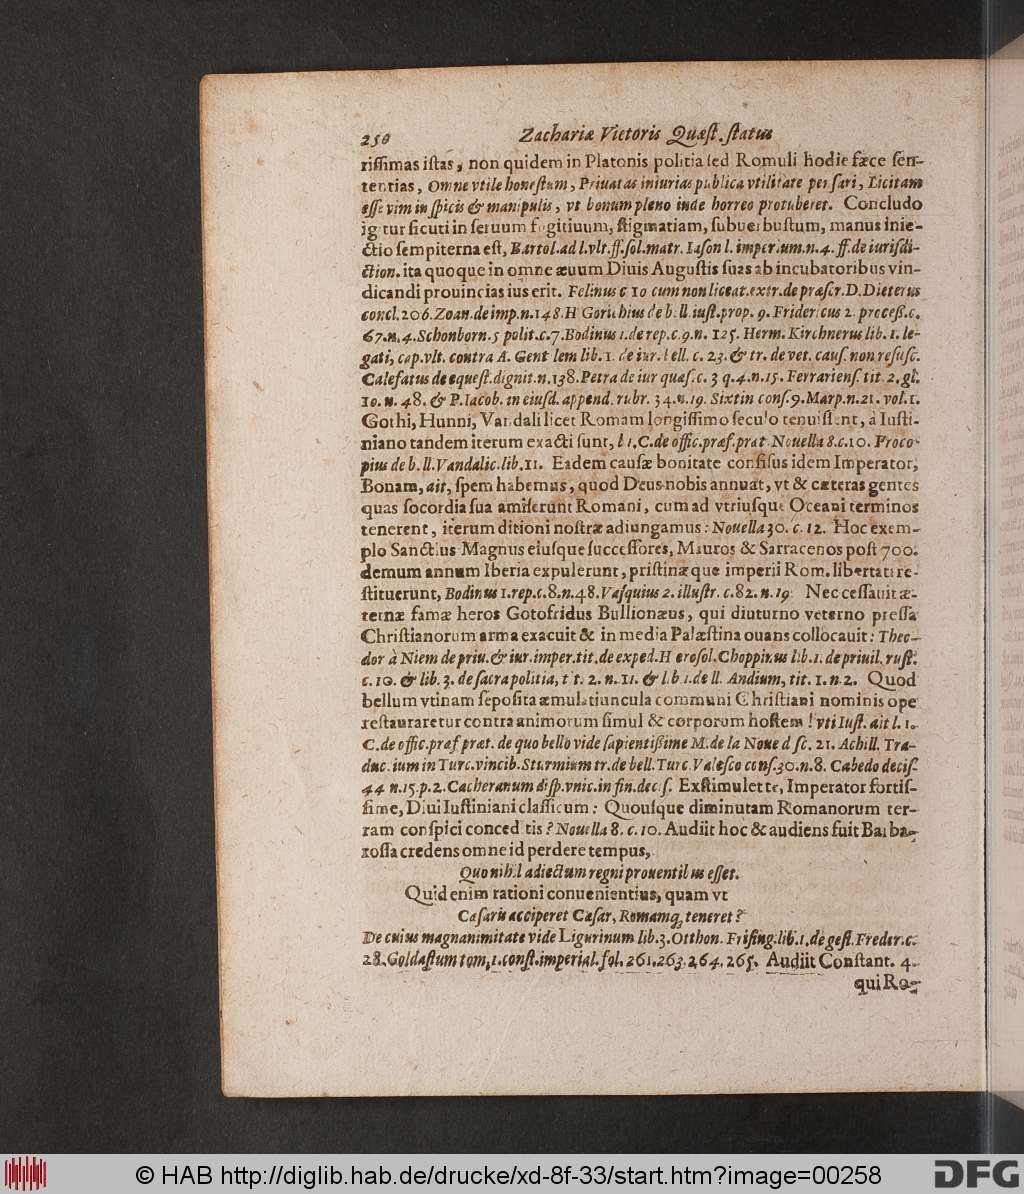 250 Zachariæ Victoris Quæſt. ſtatus
riſſimas iſtas, non quidem in Platonis politia ſed Romuli hodie fæce ſen-
tentias, Omne vtile honeſtum, Priuatas iniurias publica vtilitate penſari, Licitam
eſſe vim in ſpicis & manipulis, vt bonum pleno inde horreo protuberet. Concludo
igitur ſicuti in ſeruum fugitiuum, ſtigmatiam, ſubuerbuſtum, manus inie-
ctio ſempiterna eſt, Bartol. ad l. vlt. ff. ſol. matr. Iaſon l. imperium. n. 4. ff. de iuriſdi-
ction. ita quoque in omne æuum Diuis Auguſtis ſuas ab incubatoribus vin-
dicandi prouincias ius erit. Felinus c 10 cum non liceat. extr. de præſcr. D. Dieterus
concl. 206. Zoan. de imp. n. 148. H Gorichius de b. ll iuſt. prop. 9. Fridericus 2. proceß. c.
67. n. 4. Schonborn. 5 polit. c. 7. Bodinus 1. de rep. c. 9. n. 125. Herm. Kirchnerus lib. 1. le-
gati, cap. vlt. contra A. Gentlem lib. 1. de iur. bell. c. 23. & tr. de vet. cauſ. non reſuſc.
Calefatus de equeſt. dignit. n. 138. Petra de iur quæſ. c. 3 q. 4. n. 15. Ferrarienſ. tit. 2. gl.
10. n. 48. & P. Iacob. in eiuſd. append. rubr. 34. n. 19. Sixtin conſ. 9. Marp. n. 21. vol. 1.
Gothi, Hunni, Vandali licet Romam longiſſimo ſeculo tenuiſſent, à Iuſti-
niano tandem iterum exacti ſunt, l 1. C. de offic. præf. præt. Nouella 8. c. 10. Proco-
pius de b. ll. Vandalic. lib. 11. Eadem cauſæ bonitate conſiſus idem Imperator,
Bonam, ait, ſpem habemus, quod Deus nobis annuat, vt & cæteras gentes
quas ſocordia ſua amiſerunt Romani, cum ad vtriuſque Oceani terminos
tenerent, iterum ditioni noſtræ adiungamus: Nouella 30. c. 12. Hoc exem-
plo Sanctius Magnus eiuſque ſucceſſores, Mauros & Sarracenos poſt 700.
demum annum Iberia expulerunt, priſtinæque imperii Rom. libertati re-
ſtituerunt, Bodinus 1. rep. c. 8. n. 48. Vaſquius 2. illuſtr. c. 82. n. 19. Nec ceſſauit æ-
ternæ famæ heros Gotofridus Bullionæus, qui diuturno veterno preſſa
Chriſtianorum arma exacuit & in media Palæſtina ouans collocauit: Theo-
dor à Niem de priu. & iur. imper. tit. de exped. Hieroſol. Choppinus lib. 1. de priuil. ruſt.
c. 10. & lib. 3. de ſacra politia, tit. 2. n. 11. & lib 1. de ll. Andium, tit. 1. n. 2. Quod
bellum vtinam ſepoſita æmulatiuncula communi Chriſtiani nominis ope
reſtauraretur contra animorum ſimul & corporum hoſtem! vti Iuſt. ait l. 1.
C. de offic. præf præt. de quo bello vide ſapientißime M. de la Noue d ſc. 21. Achill. Tra-
duc. ium in Turc. vincib. Sturmium tr. de bell. Turc. Valeſco conſ. 30. n. 8. Cabedo deciſ.
44 n. 15. p. 2. Cacheranum diſp. vnic. in fin. deciſ. Exſtimulet te, Imperator fortiſ-
ſime, Diui Iuſtiniani claſſicum: Quouſque diminutam Romanorum ter-
ram conſpici conceditis? Nouella 8. c. 10. Audiit hoc & audiens fuit Barba-
roſſa credens omne id perdere tempus,
Quo nihil adiectum regni prouentibus eſſet.
Quid enim rationi conuenientius, quam vt
Caſaris acciperet Cæſar, Romamq́; teneret?
De cuius magnanimitate vide Ligurinum lib. 3. Otthon. Friſing. lib. 1. de geſt. Freder. c.
28. Goldaſtum tom. 1. conſt. imperial. fol. 261. 263. 264. 265. Audiit Conſtant. 4.
qui Ro-
© HAB http://diglib.hab.de/drucke/xd-8f-33/start.htm?image=00258
DFG